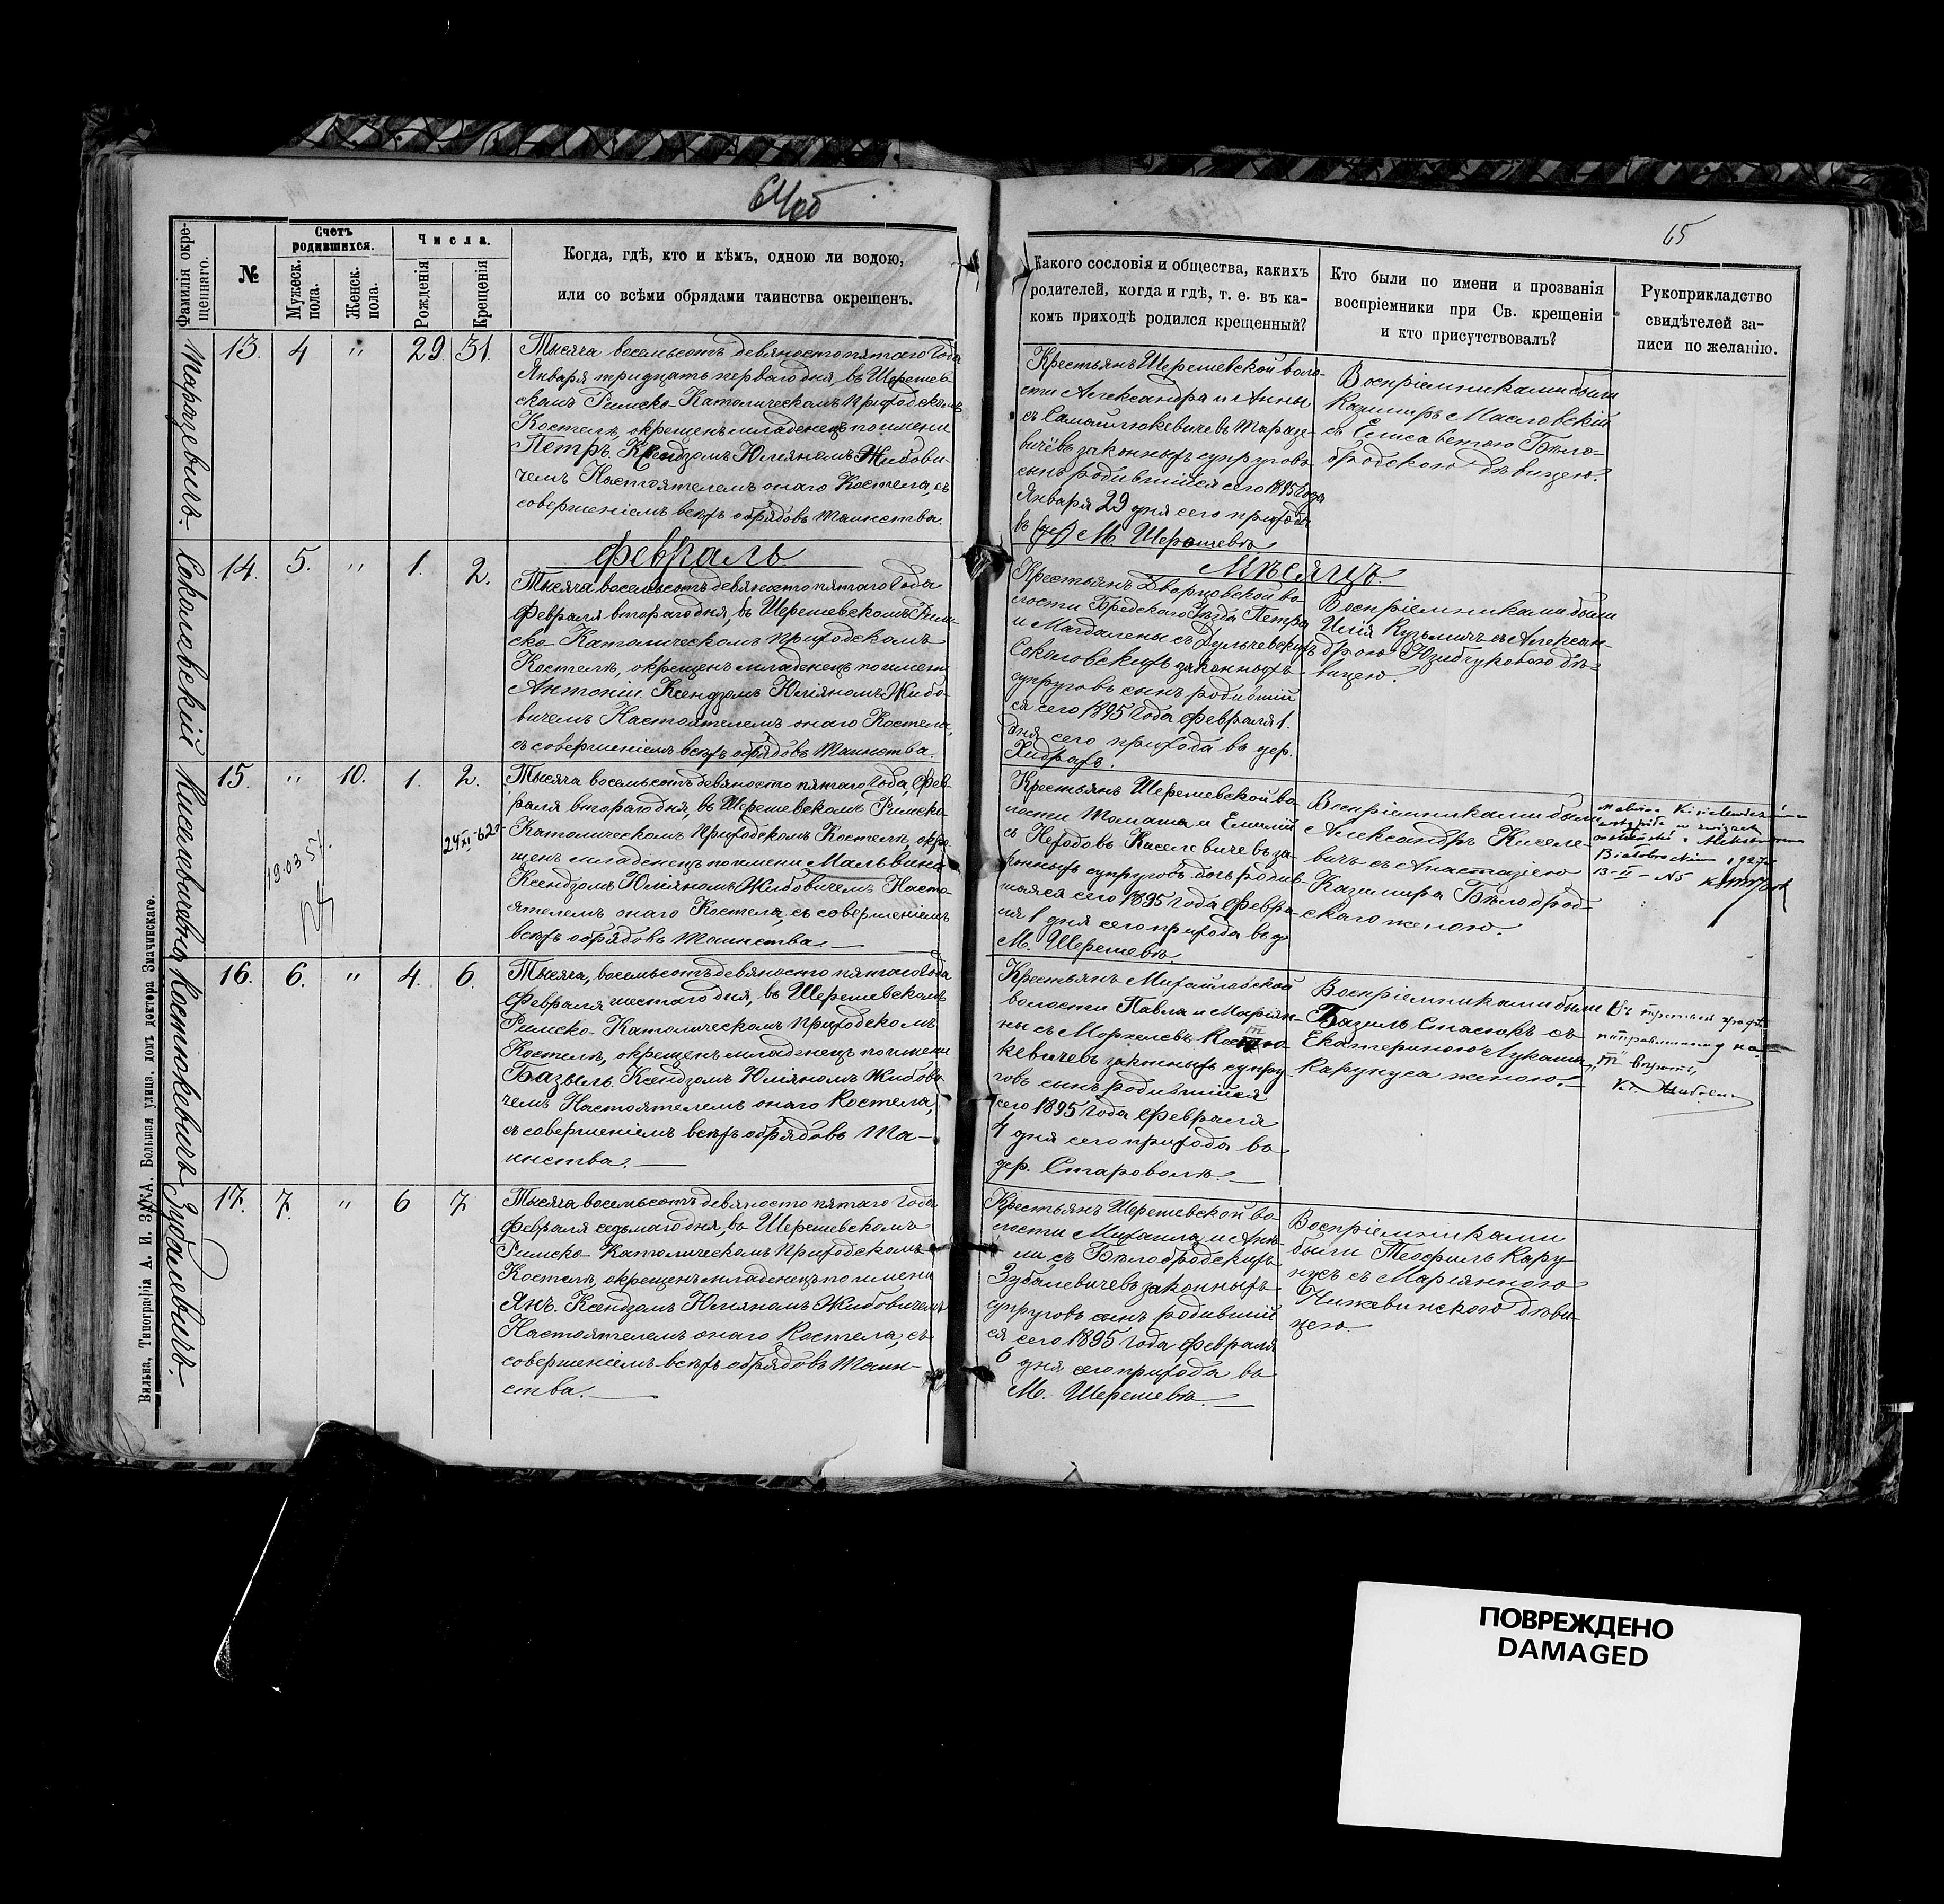 64об
65
Фамилія окре-
щеннаго.
№
Счетъ
родившихся.
Мужеск.
пола.
Женск.
пола.
Числа.
Рожденія
Крещенія
Когда, гдѣ, кто и кѣмъ, одною ли водою,
или со всѣми обрядами таинства окрещенъ.
Какого сословія и общества, какихъ
родителей, когда и гдѣ, т. е. въ ка-
комъ приходѣ родился крещенный?
Кто были по имени и прозванія
воспріемники при Св. крещеніи
и кто присутствовалъ?
Рукоприкладство
свидѣтелей за-
писи по желанію.
Тарасевичъ.
13.
4
"
29.
31.
Тысяча восемьсотъ девяносто пятаго Года
Января тридцать перваго дня, въ Шерешев-
скомъ Римско-Католическомъ Приходскомъ
Костелѣ, окрещенъ младенецъ по имени
Петръ. Ксендзомъ Юліяномъ Жибови-
чемъ Настоятелемъ онаго Костела, съ
совершеніемъ всѣхъ обрядовъ таинства.
Крестьянъ Шерешевской воло-
сти Александра и Анны
съ Самайлюкевичевъ Тарасе-
вичевъ законныхъ супруговъ
сынъ родившійся сего 1895 Года
Января 29 дня сего прихода
въ М. Шерешевѣ
Воспріемниками были
Казимиръ Масловскій
съ Елисаветою Бѣло-
бродскою дѣвицею.
Февраль
Мѣсяцъ.
Соколовскій
14.
5.
"
1.
2.
Тысяча восемьсотъ девяносто пятаго Года
Февраля втораго дня, въ Шерешевскомъ Рим-
ско-Католическомъ Приходскомъ
Костелѣ, окрещенъ младенецъ по имени
Антоній. Ксендзомъ Юліяномъ Жибо-
вичемъ Настоятелемъ онаго Костела,
съ совершеніемъ всѣхъ обрядовъ таинства.
Крестьянъ Дворцовской во-
лости Уѣзда Петра
и Магдалены съ Дульчевскихъ
Соколовскихъ законныхъ
супруговъ сынъ родившій
ся сего 1895 Года Февраля 1.
дня сего прихода въ дер.
Хидрахъ.
Воспріемниками были
Илія Кузьмичъ съ Алексан-
дрою дѣ-
вицею.
Киселевичевна
15.
"
10.
1.
2.
24 XI-62
19.03 57.
Тысяча восемьсотъ девяносто пятаго Года, Фев-
раля втораго дня, въ Шерешевскомъ Римско-
Католическомъ Приходскомъ Костелѣ, окре
щенъ младенецъ по имени Мальвина
Ксендзомъ Юліяномъ Жибовичемъ Насто-
ятелемъ онаго Костела, съ совершеніемъ
всѣхъ обрядовъ таинства.
Крестьянъ Шерешевской во-
лости Томаша и Емиліи
съ Нефодовъ Киселевичевъ за-
конныхъ супруговъ дочь родив-
шаяся сего 1895 Года Февра-
ля 1 дня сего прихода въ
М. Шерешевѣ.
Воспріемниками были
Александръ Киселе-
вичъ съ Анастазіею
Казимира Бѣлоброд-
скаго женою.
Malwina
związek
1927
13-II- N5
Костюкевичъ
16.
6.
"
4.
6.
Тысяча, восемьсотъ девяносто пятаго Года
Февраля шестаго дня, въ Шерешевскомъ
Римско-Католическомъ Приходскомъ
Костелѣ, окрещенъ младенецъ по имени
Базыль. Ксендзомъ Юліяномъ Жибови
чемъ Настоятелемъ онаго Костела,
съ совершеніемъ всѣхъ обрядовъ Та-
инства.
Крестьянъ Михайловской
волости Павла и Маріян-
ны съ Моржелевъ Костю-
кевичевъ законныхъ супру-
говъ сынъ родившійся
сего 1895 Года Февраля
4 дня сего прихода въ
дер. Староволѣ.
Воспріемниками были
Базыль Стасюкъ съ
Екатериною Лукаша
Карунуса женою.
Въ третьей графѣ
"т" вѣрно,
Зубалевичъ.
17.
7.
"
6
7
Тысяча восемьсотъ девяносто пятаго Года
Февраля седьмаго дня, въ Шерешевскомъ
Римско-Католическомъ Приходскомъ
Костелѣ, окрещенъ младенецъ по имени
Янъ. Ксендзомъ Юліяномъ Жибовичемъ
Настоятелемъ онаго Костела, съ
совершеніемъ всѣхъ обрядовъ Таин-
ства.
Крестьянъ Шерешевской во-
лости Михаила и Анѣ-
ли съ Бѣлобродскихъ
Зубалевичевъ законныхъ
супруговъ сынъ родившій
ся сего 1895 Года Февраля
6 дня сего прихода въ
М. Шерешевѣ.
Воспріемниками
были Теофиль Кару
нусъ съ Маріянною
Чижевинскою дѣви-
цею.
Вильна, Типографія А. И. ЗАКА. Большая улица, домъ доктора Змачинскаго.
ПОВРЕЖДЕНО
DAMAGED